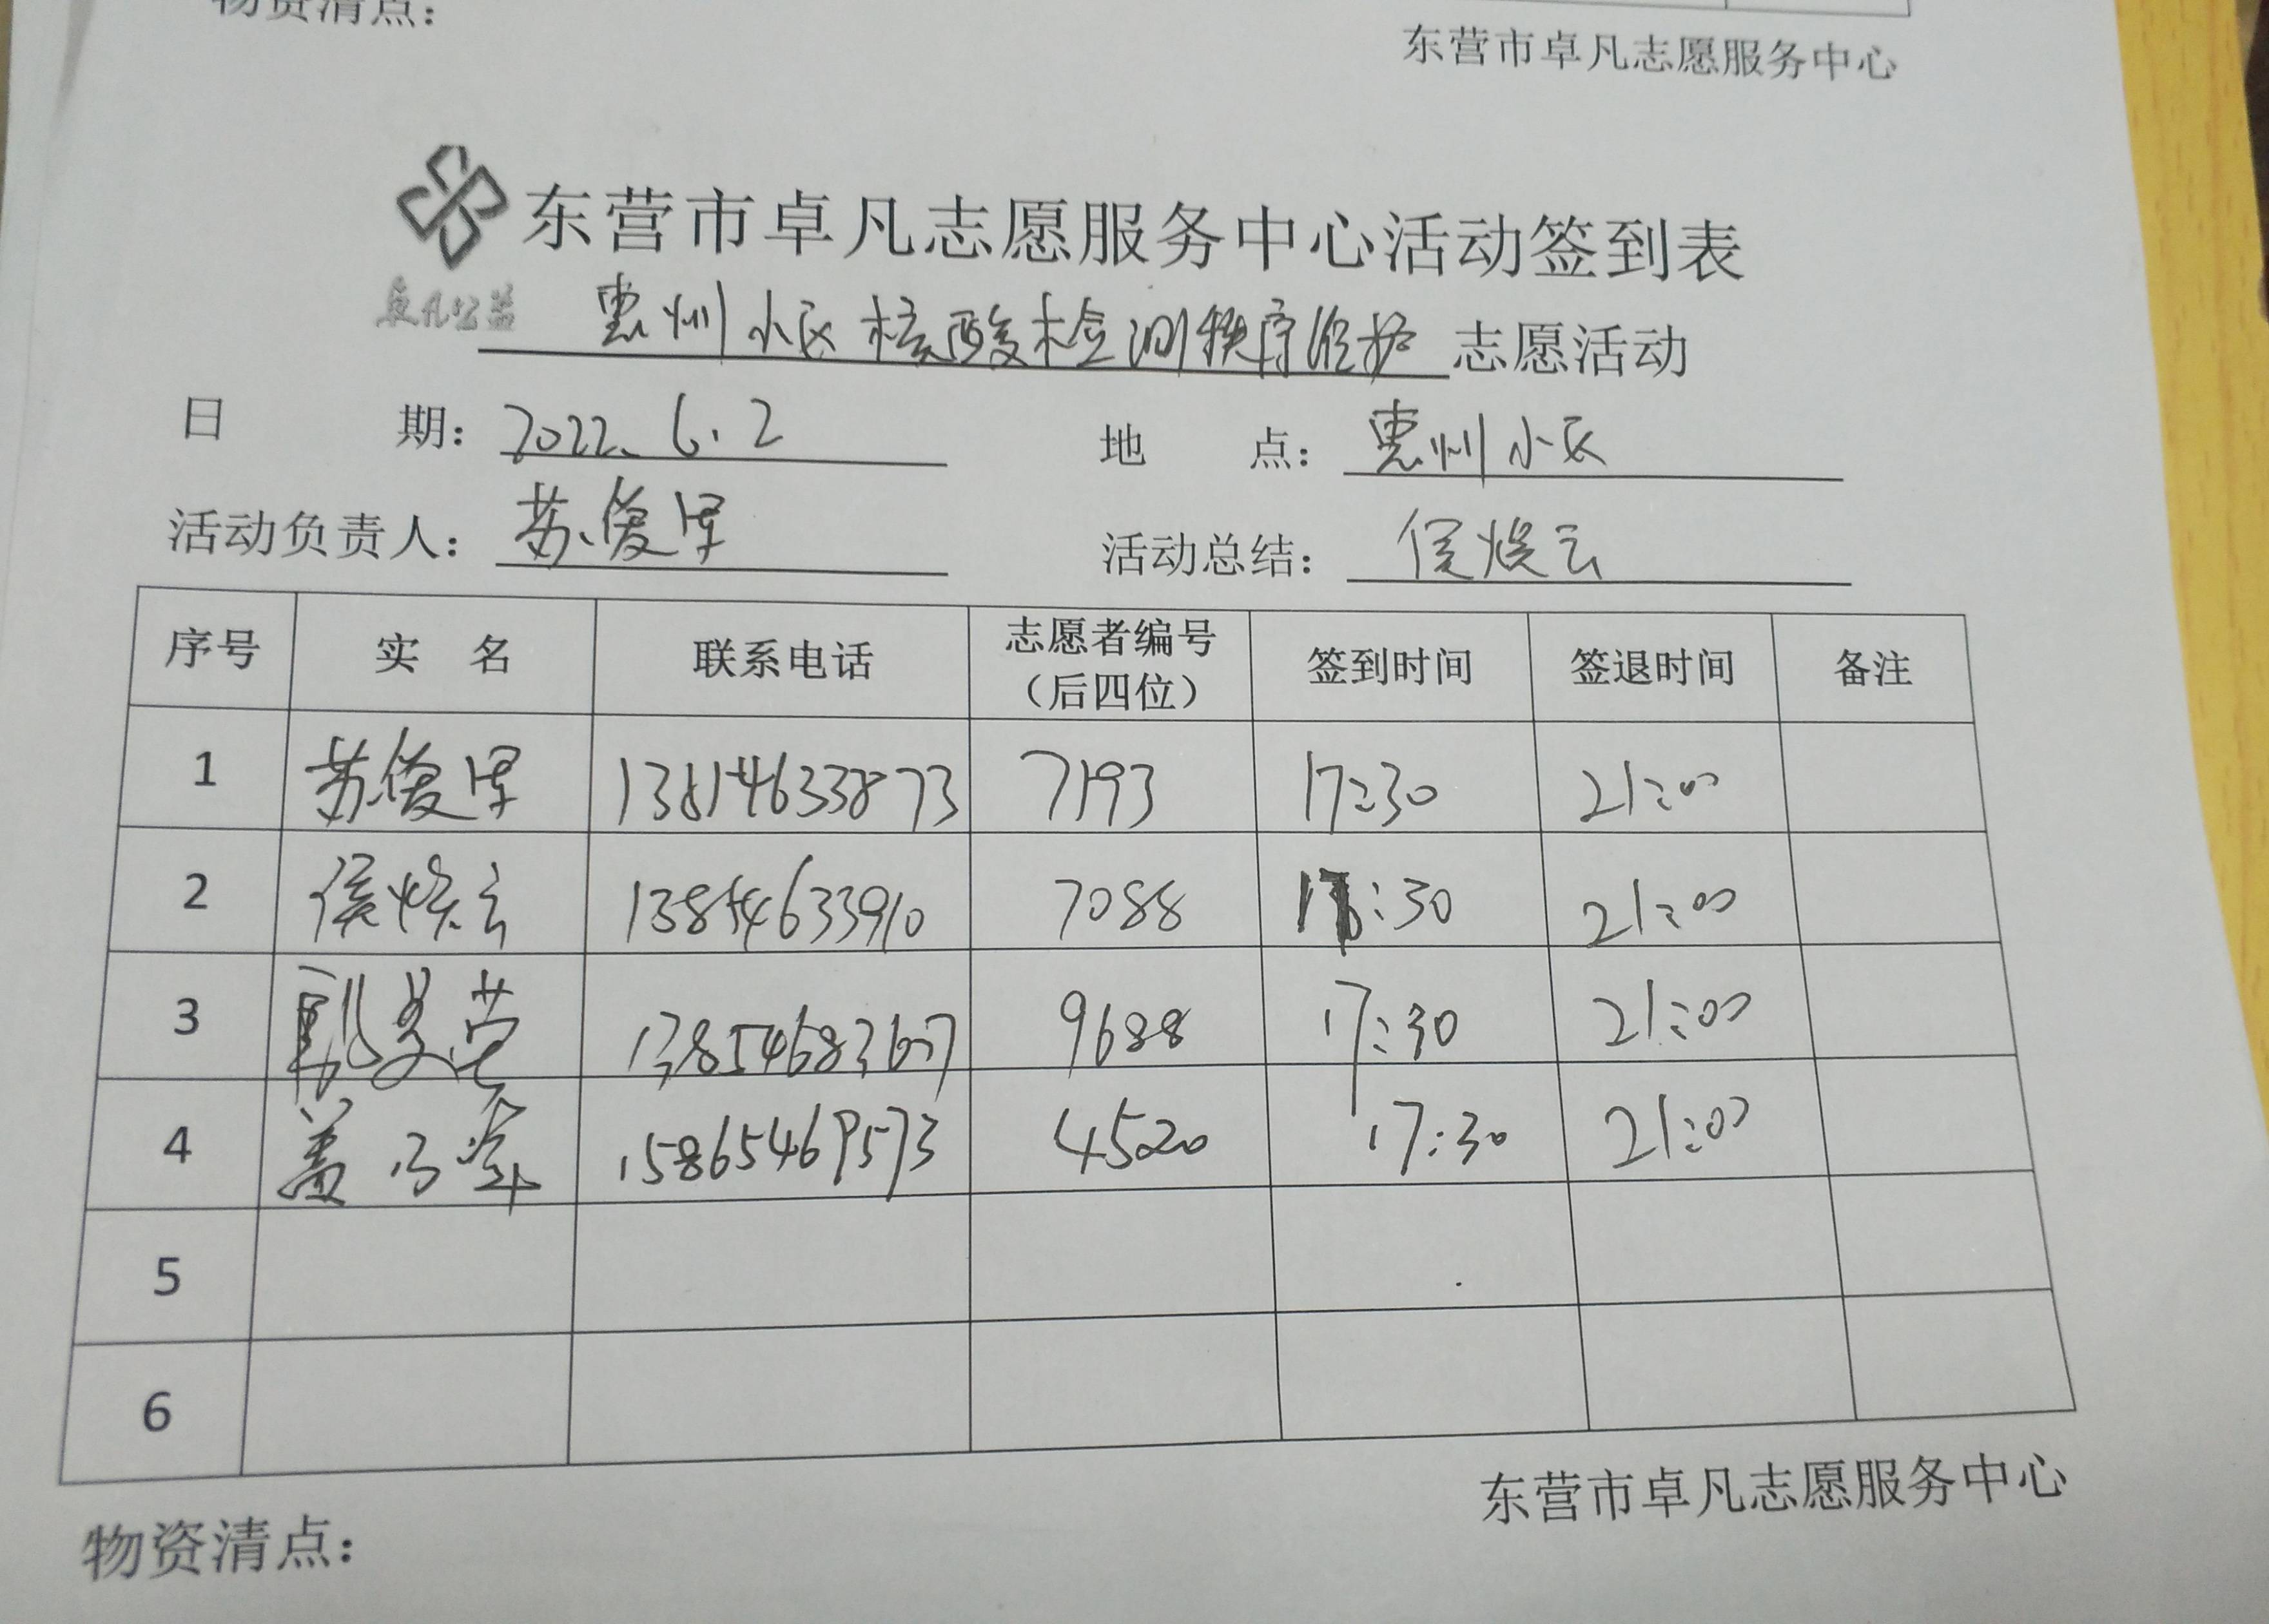 物资清点：
东营市卓凡志愿服务中心
东营市卓凡志愿服务中心活动签到表
卓凡公益
惠州小区核酸检测秩序维护志愿活动
日期：2022.6.2 地点：惠州小区
活动负责人：苏俊军 活动总结：侯焕云
序号 实名 联系电话 志愿者编号（后四位） 签到时间 签退时间 备注
1 苏俊军 13814633873 7193 17:30 21:00
2 侯焕云 13854633910 7088 :30 21:00
3 9688 17:30 21:00
4 盖 15865469573 4520 17:30 21:00
5
6
东营市卓凡志愿服务中心
物资清点：